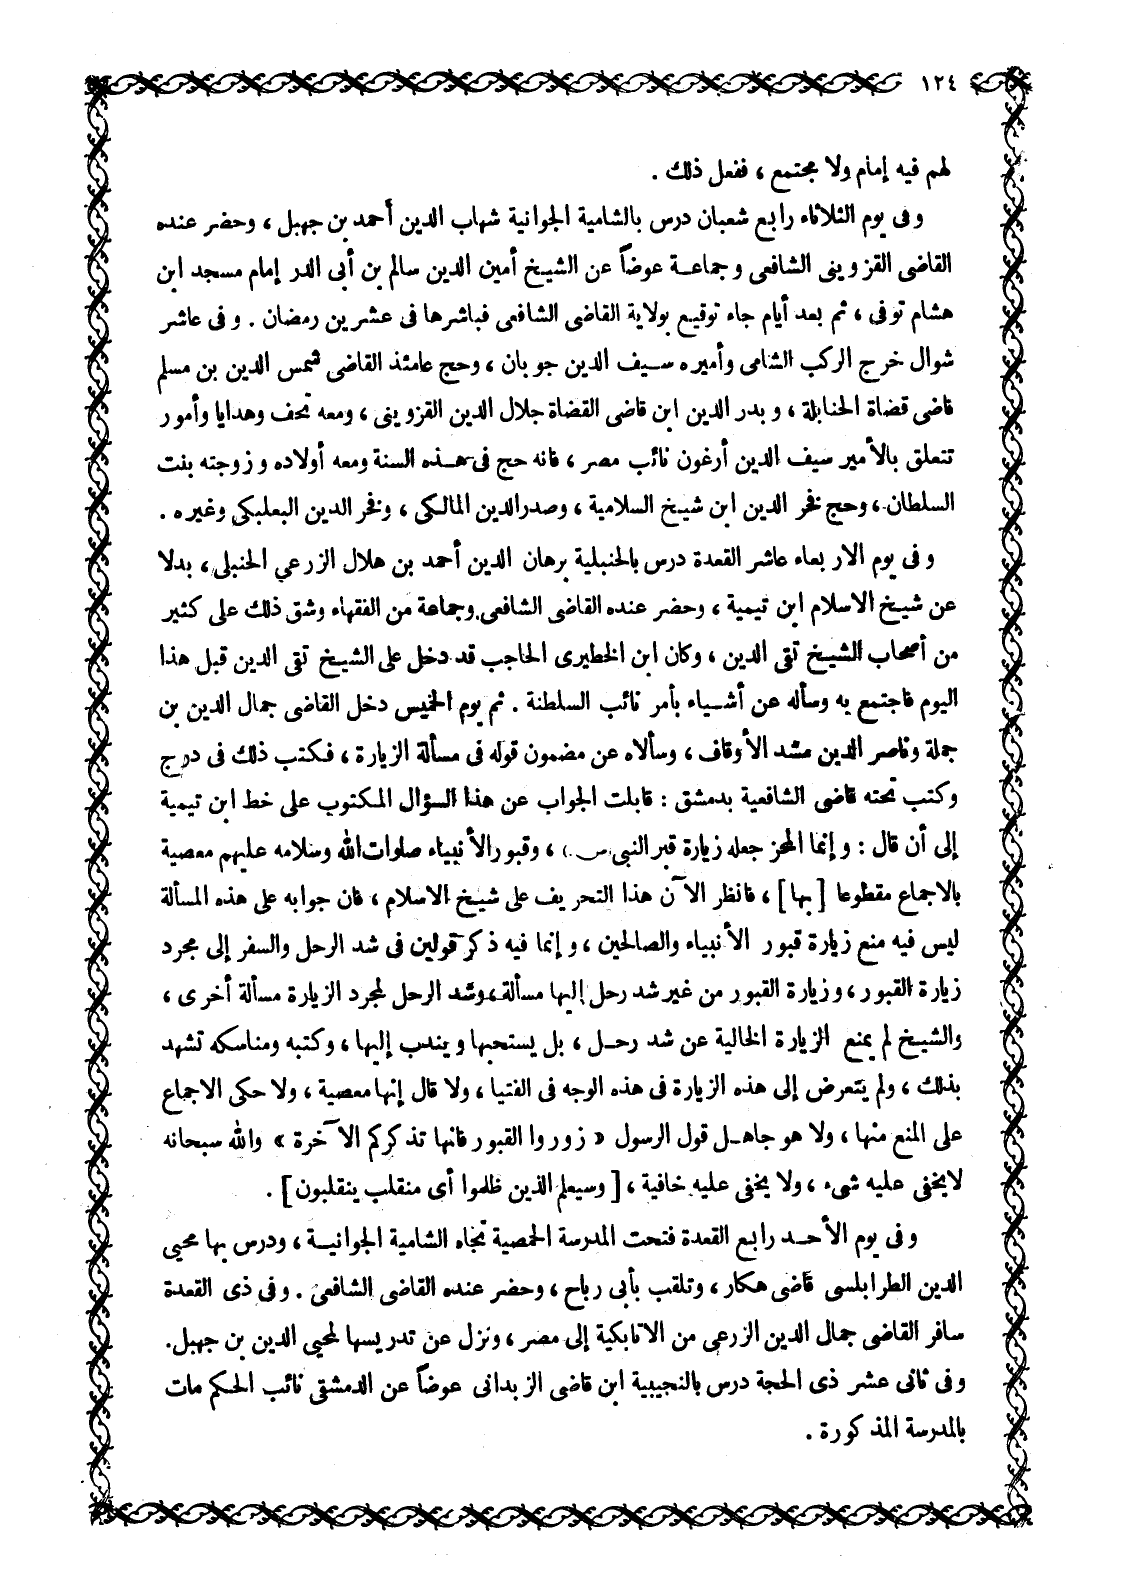 ١٢٤
لهم فيه إمام ولا مجتمع ، ففعل ذلك .
وفى يوم الثلاثاء رابع شعبان درس بالشامية الجوانية شهاب الدين أحمد بن جهبل ، وحضر عنده
القاضى القزوينى الشافعى وجماعة عوضاً عن الشيخ أمين الدين سالم بن أبى الدر إمام مسجد ابن
هشام توفى ، ثم بعد أيام جاء توقيع بولاية القاضى الشافعى فباشرها فى عشرين رمضان . وفى عاشر
شوال خرج الركب الشامى وأميره سيف الدين جوبان ، وحج عامئذ القاضى شمس الدين بن مسلم
قاضى قضاة الحنابلة ، وبدر الدين ابن قاضى القضاة جلال الدين القزوينى ، ومعه تحف وهدايا وأمور
تتعلق بالأمير سيف الدين أرغون نائب مصر ، فانه حج فى هذه السنة ومعه أولاده وزوجته بنت
السلطان ، وحج فخر الدين ابن شيخ السلامية ، وصدر الدين المالكى ، وفخر الدين البعلبكى وغيره .
وفى يوم الاربعاء عاشر القعدة درس بالحنبلية برهان الدين أحمد بن هلال الزرعي الحنبلى ، بدلا
عن شيخ الاسلام ابن تيمية ، وحضر عنده القاضى الشافعى وجماعة من الفقهاء وشق ذلك على كثير
من أصحاب الشيخ تقى الدين ، وكان ابن الخطيرى الحاجب قد دخل على الشيخ تقى الدين قبل هذا
اليوم فاجتمع به وسأله عن أشياء بأمر نائب السلطنة . ثم يوم الخميس دخل القاضى جمال الدين بن
جملة وناصر الدين مشد الأوقاف ، وسألاه عن مضمون قوله فى مسألة الزيارة ، فكتب ذلك فى درج
وكتب تحته قاضى الشافعية بدمشق : قابلت الجواب عن هذا السؤال المكتوب على خط ابن تيمية
إلى أن قال : وإنما المحز جعله زيارة قبر النبى (ص) ، وقبور الأنبياء صلوات الله وسلامه عليهم معصية
بالاجماع مقطوعا [ بها ] ، فانظر الآن هذا التحريف على شيخ الاسلام ، فان جوابه على هذه المسألة
ليس فيه منع زيارة قبور الأنبياء والصالحين ، وإنما فيه ذكر قولين فى شد الرحل والسفر إلى مجرد
زيارة القبور ، وزيارة القبور من غير شد رحل إليها مسألة ، وشد الرحل لمجرد الزيارة مسألة أخرى ،
والشيخ لم يمنع الزيارة الخالية عن شد رحل ، بل يستحبها ويندب إليها ، وكتبه ومناسكه تشهد
بذلك ، ولم يتعرض إلى هذه الزيارة فى هذه الوجه فى الفتيا ، ولا قال إنها معصية ، ولا حكى الاجماع
على المنع منها ، ولا هو جاهل قول الرسول « زوروا القبور فانها تذكركم الآخرة » والله سبحانه
لايخفى عليه شىء ، ولا يخفى عليه خافية ، [ وسيعلم الذين ظلموا أى منقلب ينقلبون ] .
وفى يوم الأحد رابع القعدة فتحت المدرسة الحمصية تجاه الشامية الجوانية ، ودرس بها محيى
الدين الطرابلسى قاضى هكار ، وتلقب بأبى رباح ، وحضر عنده القاضى الشافعى . وفى ذى القعدة
سافر القاضى جمال الدين الزرعى من الاتابكية إلى مصر ، ونزل عن تدريسها لمحيى الدين بن جهبل.
وفى ثانى عشر ذى الحجة درس بالنجيبية ابن قاضى الزبدانى عوضاً عن الدمشقى نائب الحكم مات
بالمدرسة المذكورة .